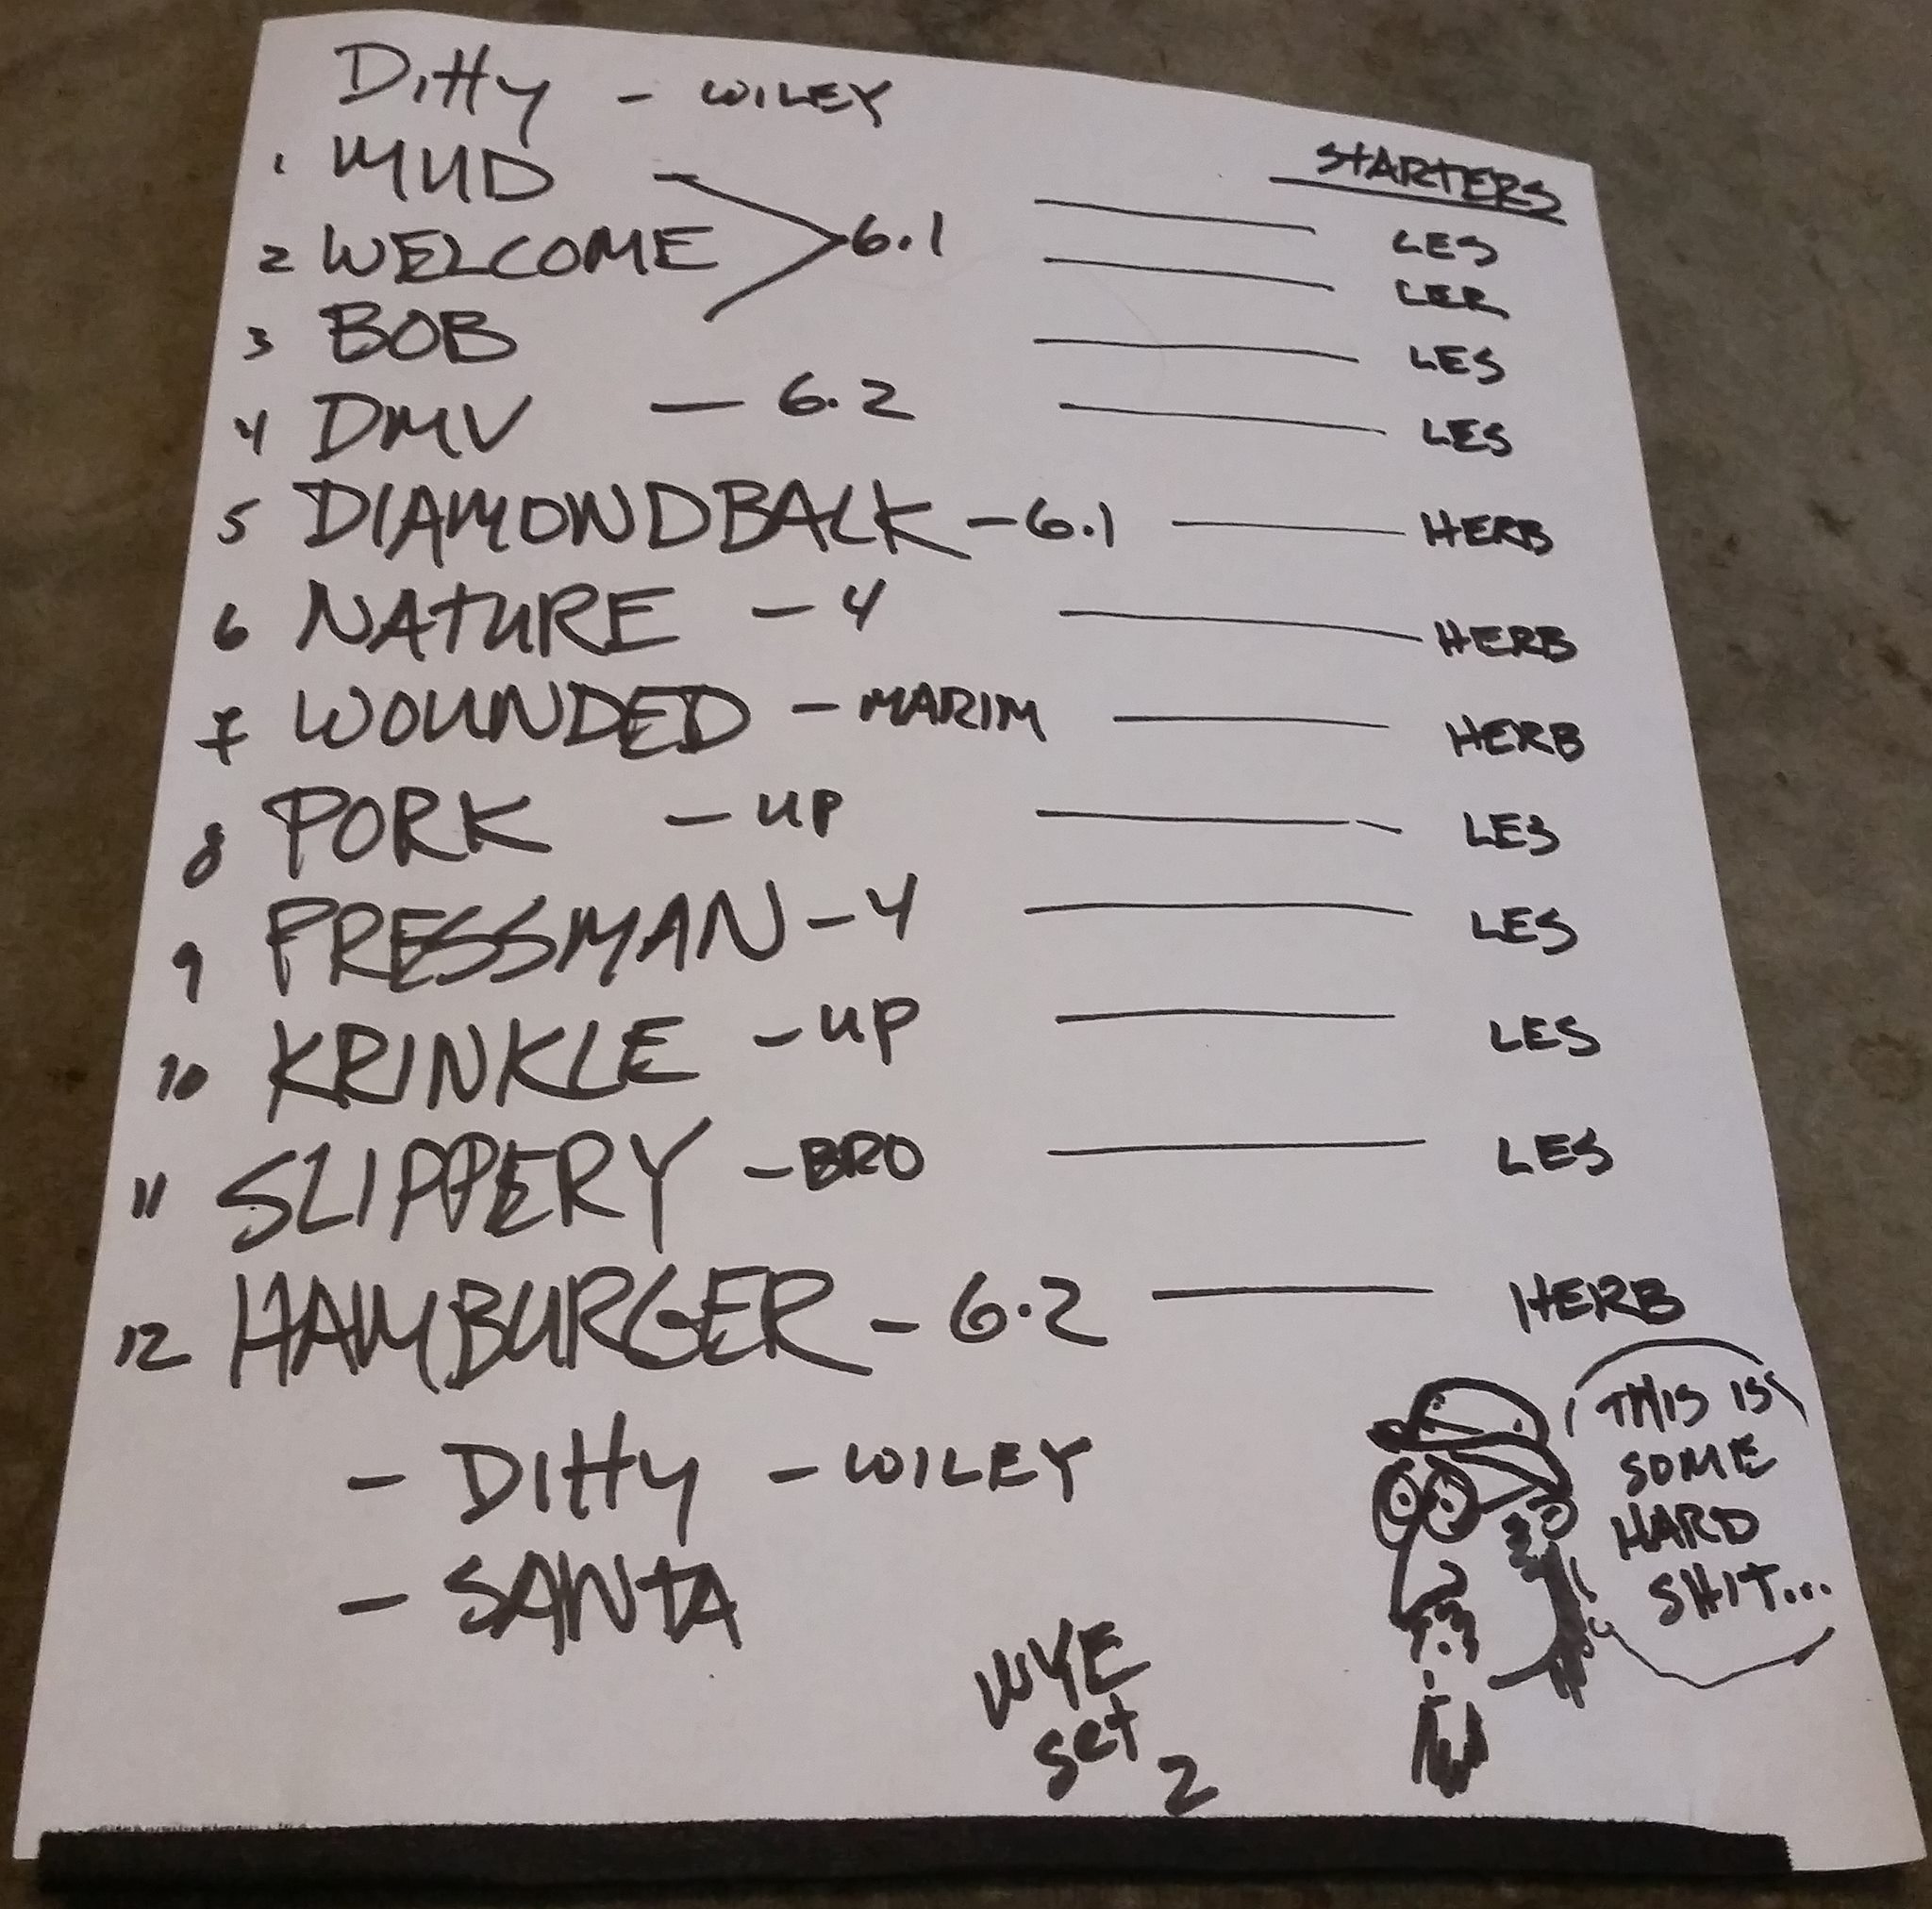 Ditty - WILEY
STARTERS
1 MUD - 6.1 LES
2 WELCOME LER
3 BOB LES
4 DMV - 6.2 LES
5 DIAMONDBALK - 6.1 HERB
6 NATURE - 4 HERB
7 WOUNDED - MARIM HERB
8 PORK - UP LES
9 PRESSMAN - 4 LES
10 KRINKLE - UP LES
11 SLIPPERY - BRO LES
12 HAMBURGER - 6.2 HERB
- Ditty - WILEY
- SANTA
THIS IS
SOME
HARD
SHIT...
WYE
set
2